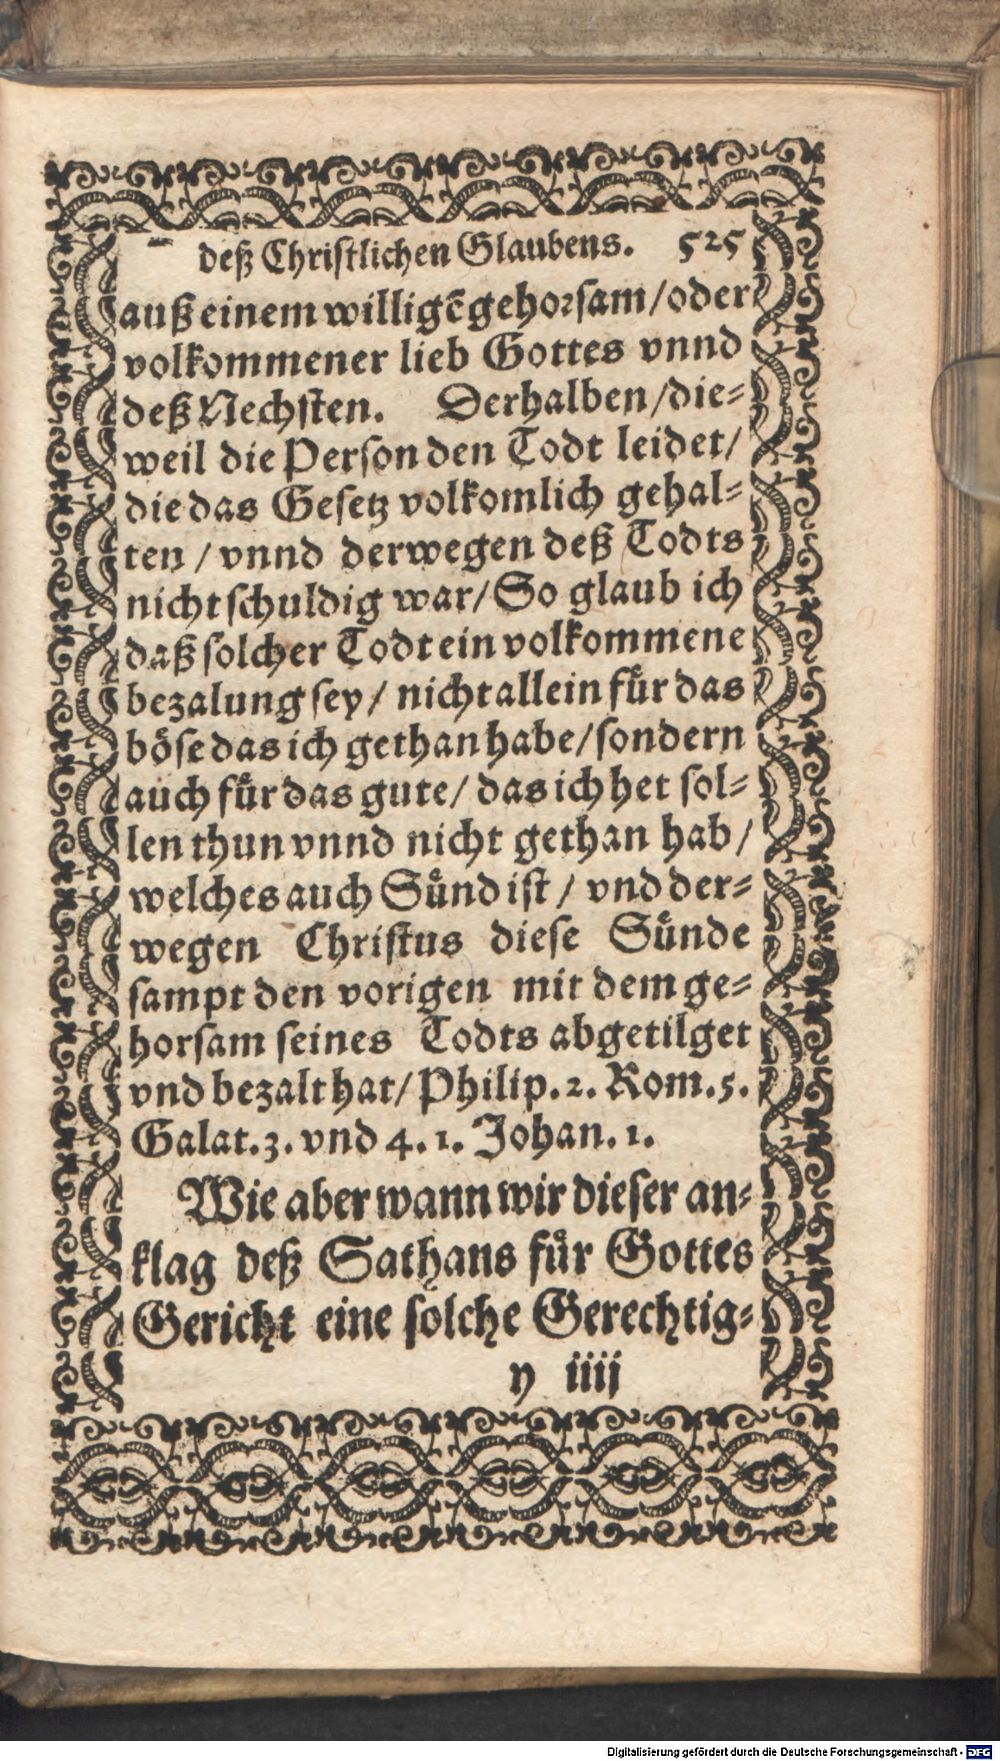 deß Christlichen Glaubens. 525
auß einem willigē gehorsam/oder
volkommener lieb Gottes vnnd
deß Nechsten. Derhalben/die-
weil die Person den Todt leidet/
die das Gesetz volkomlich gehal-
ten / vnnd derwegen deß Todts
nicht schuldig war/So glaub ich
daß solcher Todt ein volkommene
bezalung sey/ nicht allein für das
böse das ich gethan habe/sondern
auch für das gute/ das ich het sol-
len thun vnnd nicht gethan hab/
welches auch Sünd ist / vnd der-
wegen Christus diese Sünde
sampt den vorigen mit dem ge-
horsam seines Todts abgetilget
vnd bezalt hat/ Philip.2. Rom.5.
Galat.3. vnd 4. 1. Johan. 1.
Wie aber wann wir dieser an-
klag deß Sathans für Gottes
Gericht eine solche Gerechtig-
y iiij
Digitalisierung gefördert durch die Deutsche Forschungsgemeinschaft - DFG